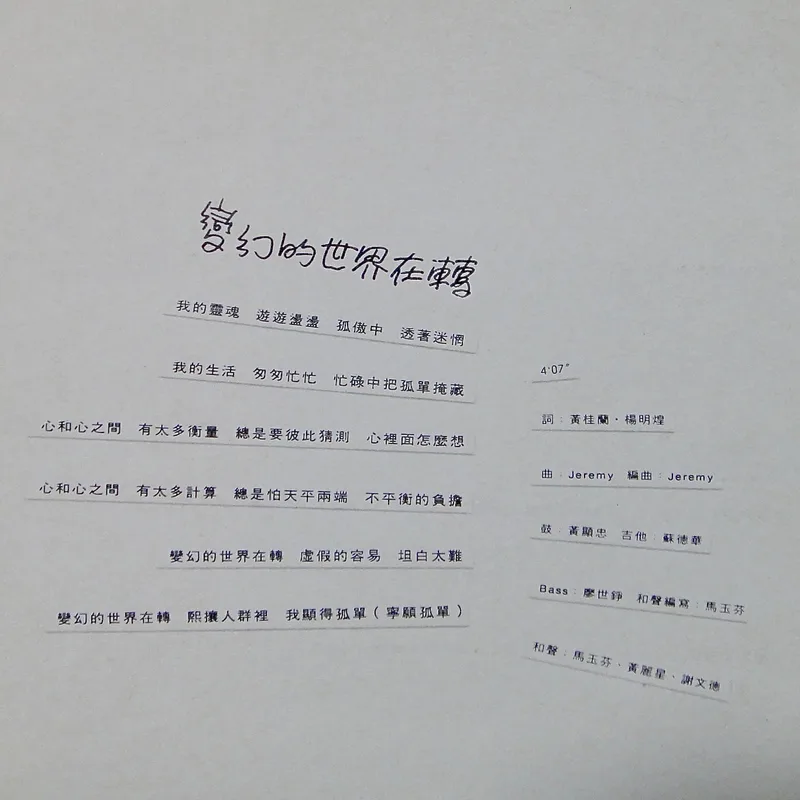 變幻的世界在轉
我的靈魂　遊遊盪盪　孤傲中　透著迷惘
我的生活　匆匆忙忙　忙碌中把孤單掩藏
心和心之間　有太多衡量　總是要彼此猜測　心裡面怎麼想
心和心之間　有太多計算　總是怕天平兩端　不平衡的負擔
變幻的世界在轉　虛假的容易　坦白太難
變幻的世界在轉　熙攘人群裡　我顯得孤單（寧願孤單）
4'07"
詞：黃桂蘭・楊明煌
曲：Jeremy　編曲：Jeremy
鼓：黃顯忠　吉他：蘇德華
Bass：廖世錚　和聲編寫：馬玉芬
和聲：馬玉芬・黃麗星・謝文德